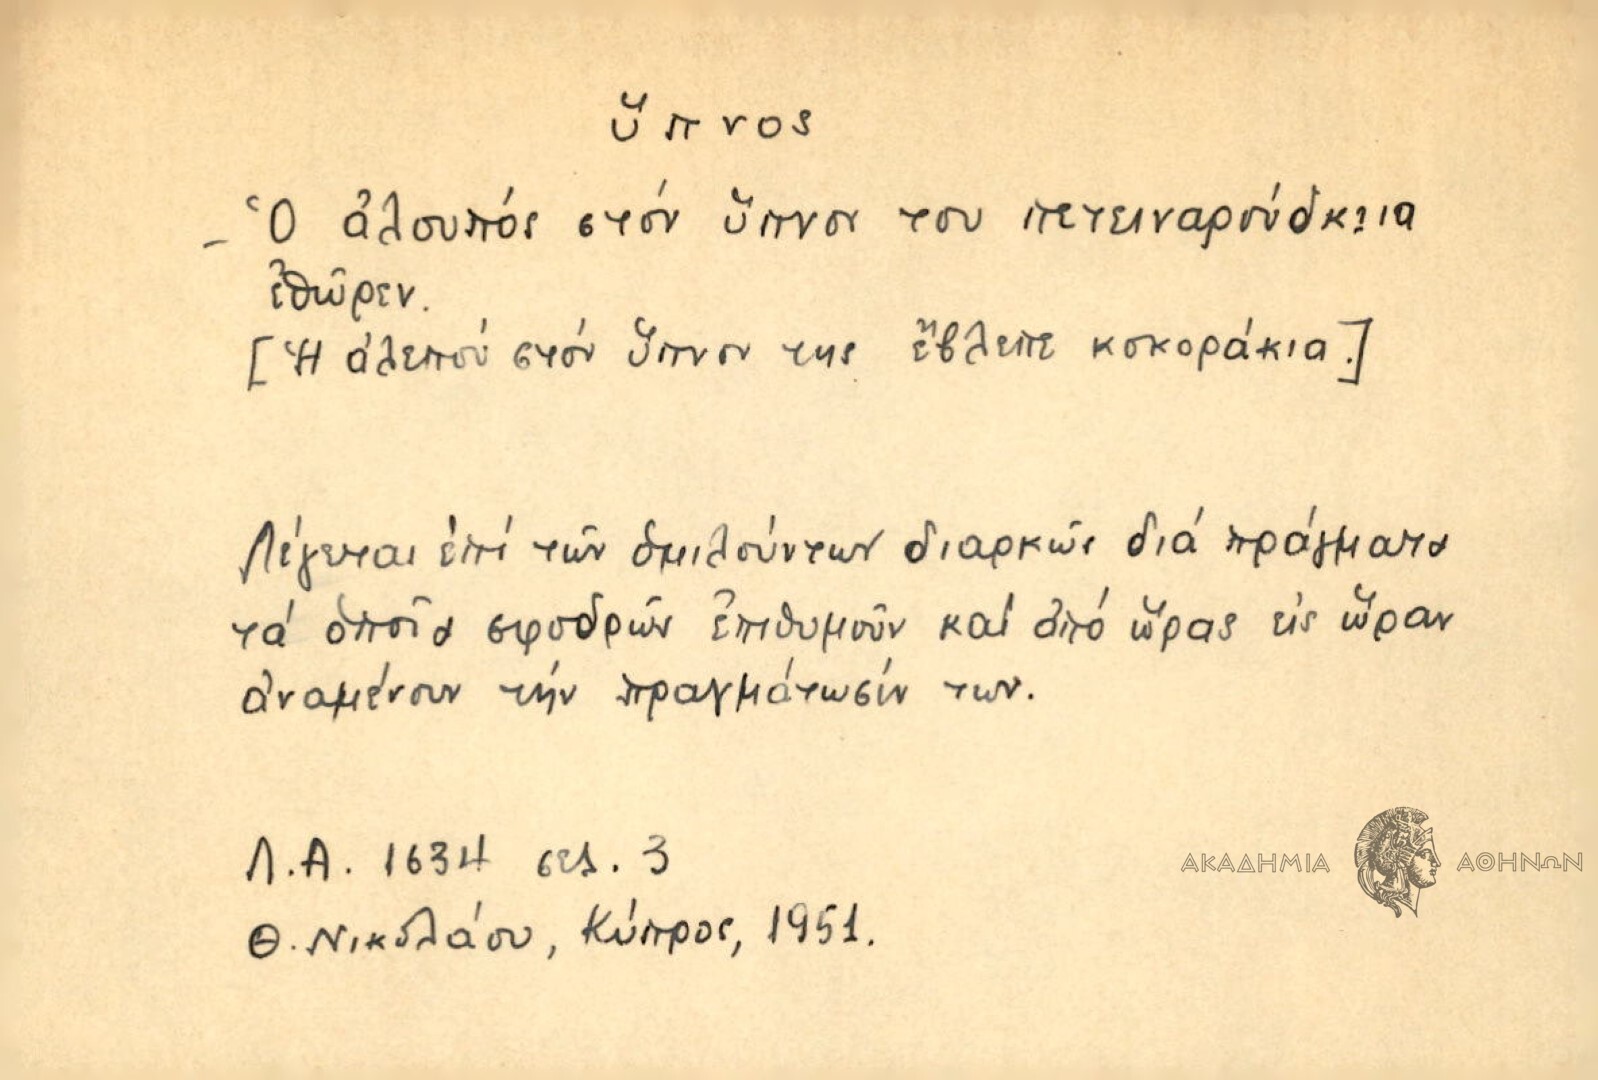 ὕπνος
– Ὁ ἀλουπός στόν ὕπνον του πετειναρούδκια
ἐθῶρεν.
[Ἡ ἀλεπού στόν ὕπνον της ἔβλεπε κοκοράκια.]
Λέγεται ἐπί τῶν ὁμιλούντων διαρκῶς διά πράγματα
τά ὁποῖα σφοδρῶς ἐπιθυμοῦν καί ἀπό ὥρας εἰς ὥραν
ἀναμένουν τήν πραγμάτωσίν των.
Λ.Α. 1634 σελ. 3
ΑΚΑΔΗΜΙΑ ΑΘΗΝΩΝ
Θ. Νικολάου, Κύπρος, 1951.